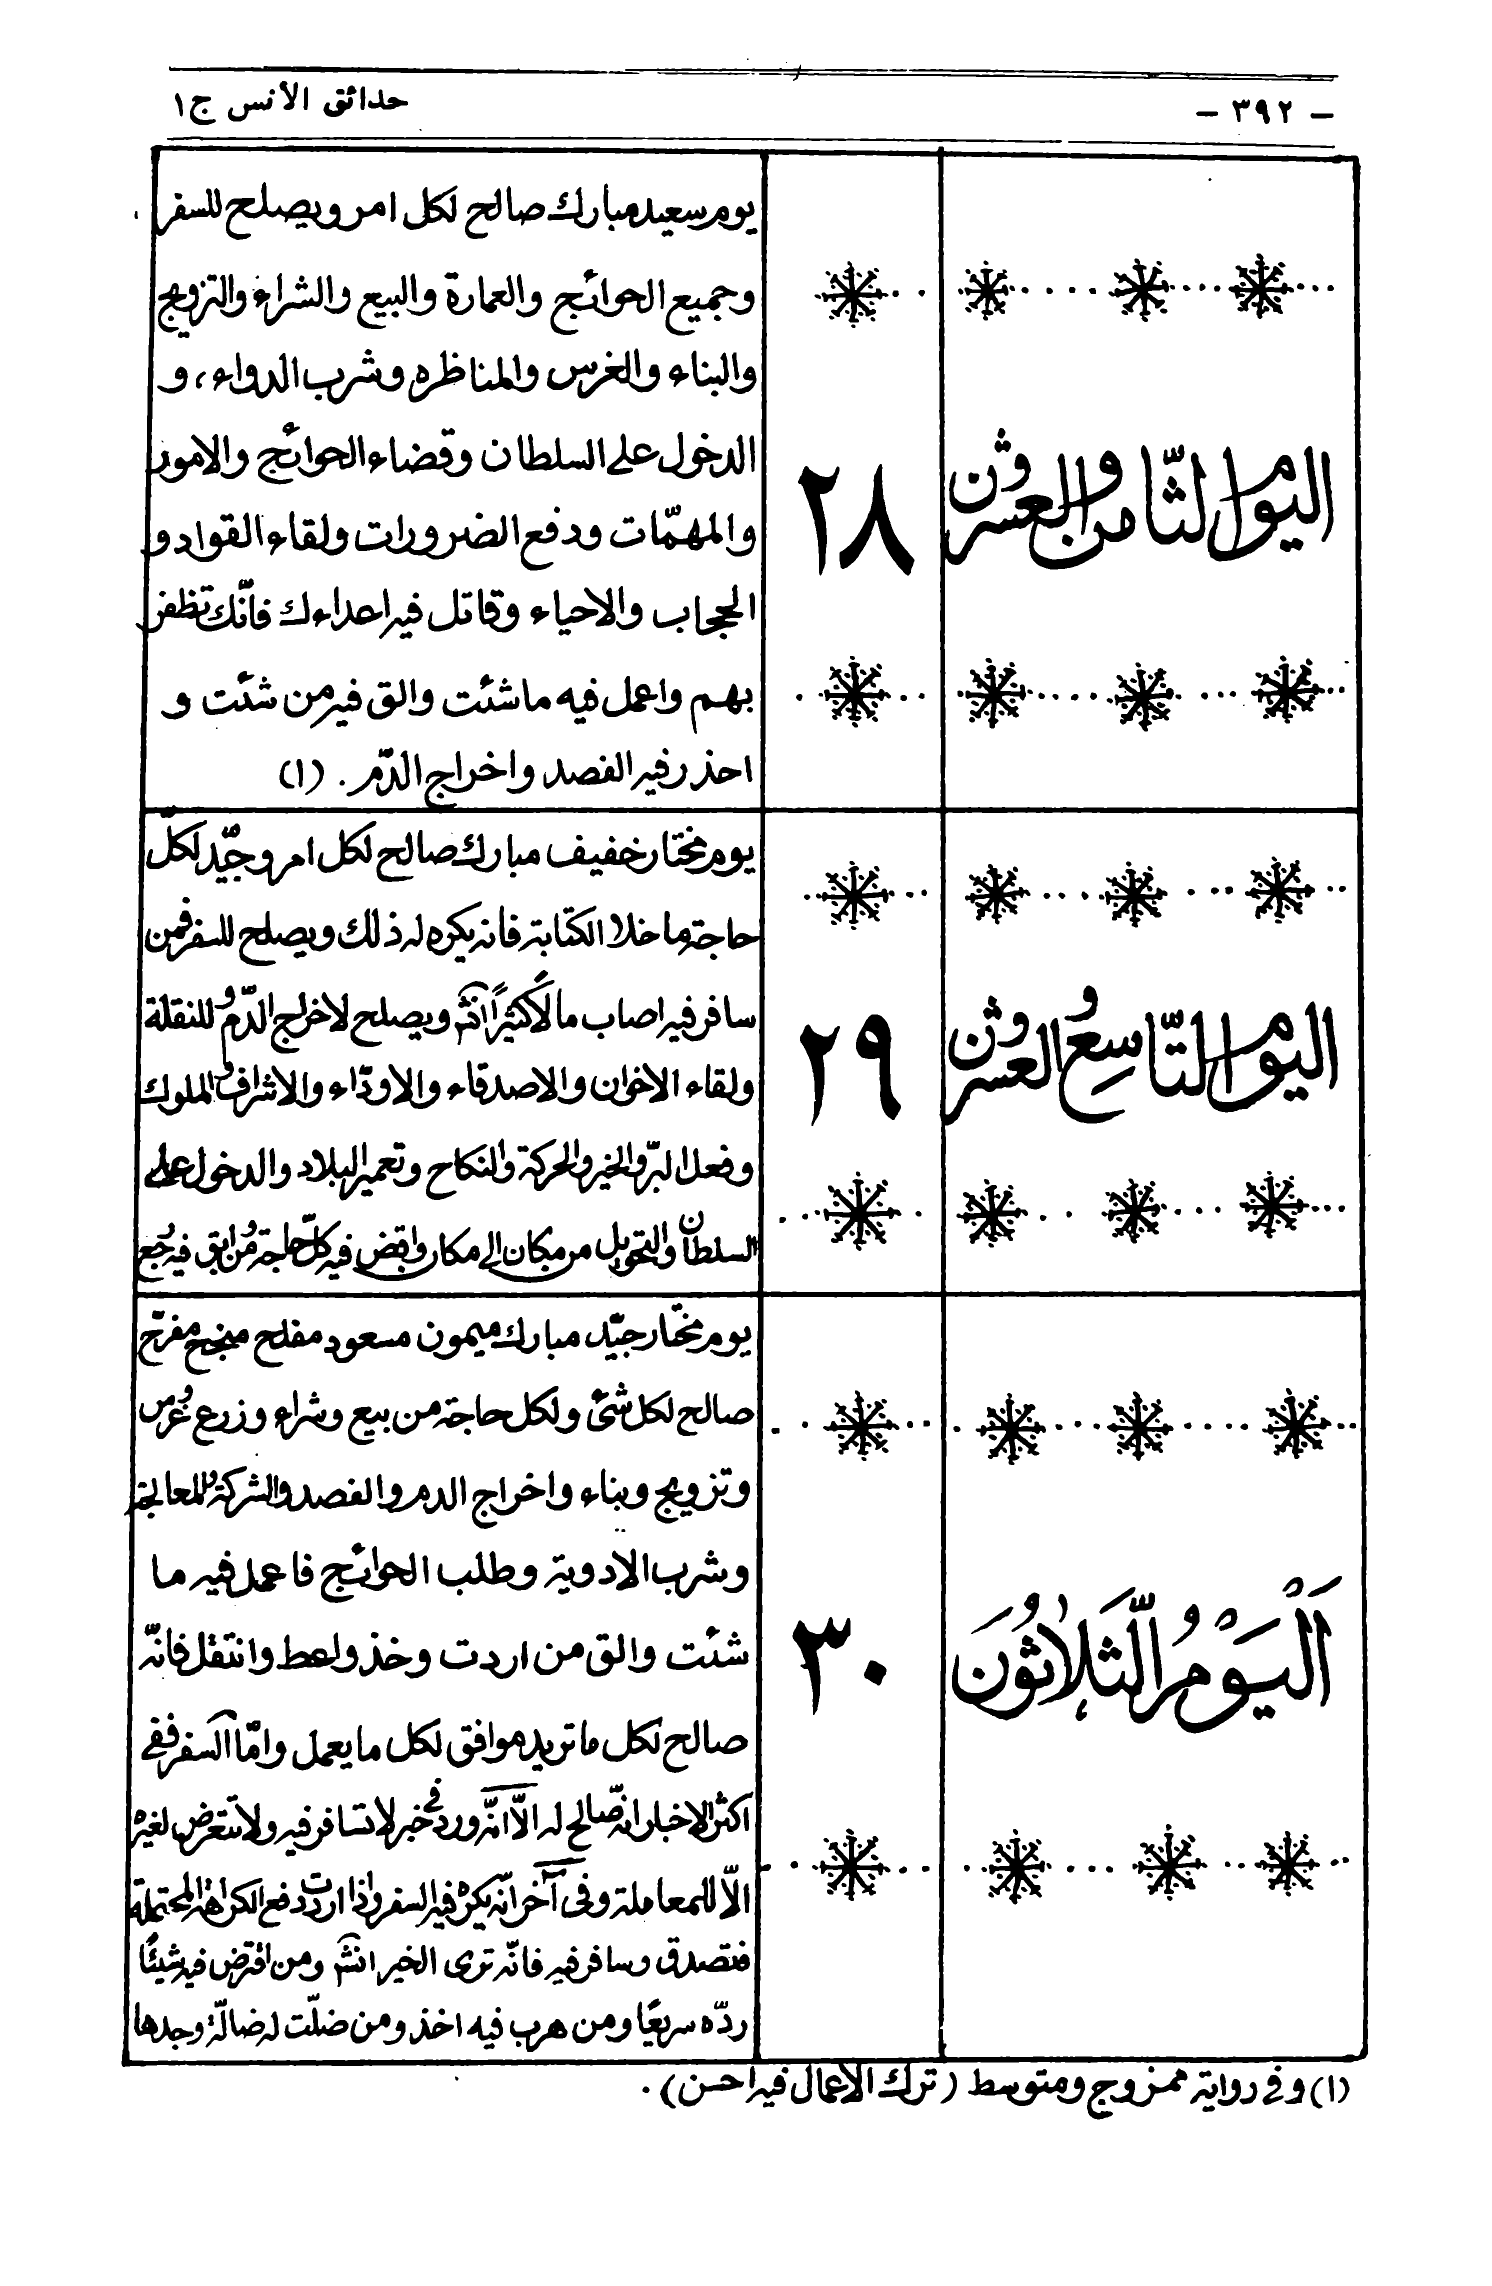 - ٣٩٢ -
حدائق الأنس ج١
اليوم الثامن والعشرون
٢٨
يوم سعيد مبارك صالح لكل امر ويصلح للسفر
وجميع الحوائج والعمارة والبيع والشراء والتزويج
والبناء والغرس والمناظره وشرب الدواء، و
الدخول على السلطان وقضاء الحوائج والامور
والمهمّات ودفع الضرورات ولقاء القواد و
الحجاب والاحياء وقاتل فيه اعداءك فانّك تظفر
بهم واعمل فيه ماشئت والق فيه من شئت و
احذر فيه الفصد واخراج الدّم. (١)
اليوم التّاسع والعشرون
٢٩
يوم مختار خفيف مبارك صالح لكل امر وجيّد لكلّ
حاجة ما خلا الكتابة فانه يكره له ذلك ويصلح للسفر فمن
سافر فيه اصاب مالاً كثيراً انش ويصلح لاخراج الدّم و للنقلة
ولقاء الاخوان والاصدقاء والاودّاء والاشراف والملوك
وفعل البرّ والخير والحركة والنكاح وتعمير البلاد والدخول على
السلطان والتحويل من مكان الى مكان واقض فيه كلّ حاجة ومن ابق فيه رجع
اَلْيَوْمُ الثَّلاثُونَ
٣٠
يوم مختار جيّد مبارك ميمون مسعود مفلح منجح مفرّح
صالح لكل شئ ولكل حاجة من بيع وشراء وزرع وغرس
وتزويج وبناء واخراج الدم والفصد والشركة والمعالجة
وشرب الادوية وطلب الحوائج فاعمل فيه ما
شئت والق من اردت وخذ واعط وانتقل فانّه
صالح لكل ما تريد موافق لكل ما يعمل وامّا السفر ففي
اكثر الاخبار انه صالح له الّا انّه ورد في خبر لا تسافر فيه ولا تتعرض لغيره
الّا للمعاملة وفى آخر انّه يكره فيه السفر واذا اردت دفع الكراهة المحتملة
فتصدق وسافر فيه فانّه ترى الخير انش ومن اقترض فيه شيئاً
ردّه سريعًا ومن هرب فيه اخذ ومن ضلّت له ضالّة وجدها
(١) وفي رواية ممزوج ومتوسط (ترك الاعمال فيه احسن).